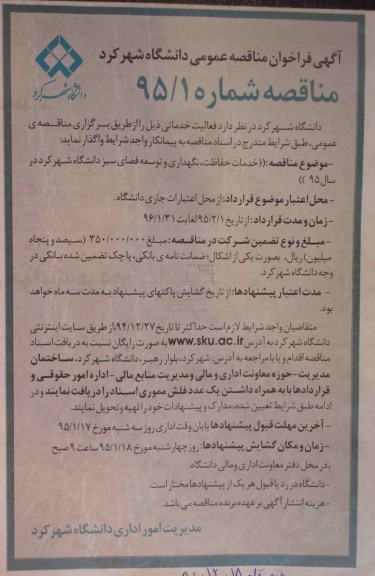 آگهی فراخوان مناقصه عمومی دانشگاه شهرکرد
دانشگاه شهرکرد
مناقصه شماره ۹۵/۱
دانشگاه شهرکرد در نظر دارد فعالیت خدماتی ذیل را از طریق برگزاری مناقصه ی
عمومی، طبق شرایط مندرج در اسناد مناقصه به پیمانکار واجد شرایط واگذار نماید:
-موضوع مناقصه:((خدمات حفاظت، نگهداری و توسعه فضای سبز دانشگاه شهرکرد در
سال ۹۵ ))
- محل اعتبار موضوع قرارداد: از محل اعتبارات جاری دانشگاه.
- زمان و مدت قرارداد: از تاریخ ۹۵/۲/۱ لغایت ۹۶/۱/۳۱
- مبلغ و نوع تضمین شرکت در مناقصه: مبلغ ۳۵۰/۰۰۰/۰۰۰ (سیصد و پنجاه
میلیون) ریال، بصورت یکی از اشکال؛ ضمانت نامه ی بانکی، یا چک تضمین شده بانکی در
وجه دانشگاه شهرکرد.
- مدت اعتبار پیشنهادها: از تاریخ گشایش پاکتهای پیشنهاد به مدت سه ماه خواهد
بود.
متقاضیان واجد شرایط لازم است حداکثر تا تاریخ ۹۴/۱۲/۲۷ از طریق سایت اینترنتی
دانشگاه شهرکرد به آدرس www.sku.ac.ir به صورت رایگان نسبت به دریافت اسناد
مناقصه اقدام و یا با مراجعه به آدرس: شهرکرد، بلوار رهبر، دانشگاه شهرکرد، ساختمان
مدیریت-حوزه معاونت اداری و مالی و مدیریت منابع مالی-اداره امور حقوقی و
قراردادها با به همراه داشتن یک عدد فلش مموری اسناد را دریافت نمایند و در
ادامه طبق شرایط تعیین شده، مدارک و پیشنهادات خود را تهیه و تحویل نمایند.
- آخرین مهلت قبول پیشنهادها پایان وقت اداری روز سه شنبه مورخ ۹۵/۱/۱۷
-زمان و مکان گشایش پیشنهادها: روز چهارشنبه مورخ ۹۵/۱/۱۸ ساعت ۹ صبح
،در محل دفتر معاونت اداری و مالی دانشگاه.
-دانشگاه در رد یا قبول هر یک از پیشنهادها مختار است.
-هزینه انتشار آگهی بر عهده برنده مناقصه می باشد.
مدیریت امور اداری دانشگاه شهرکرد